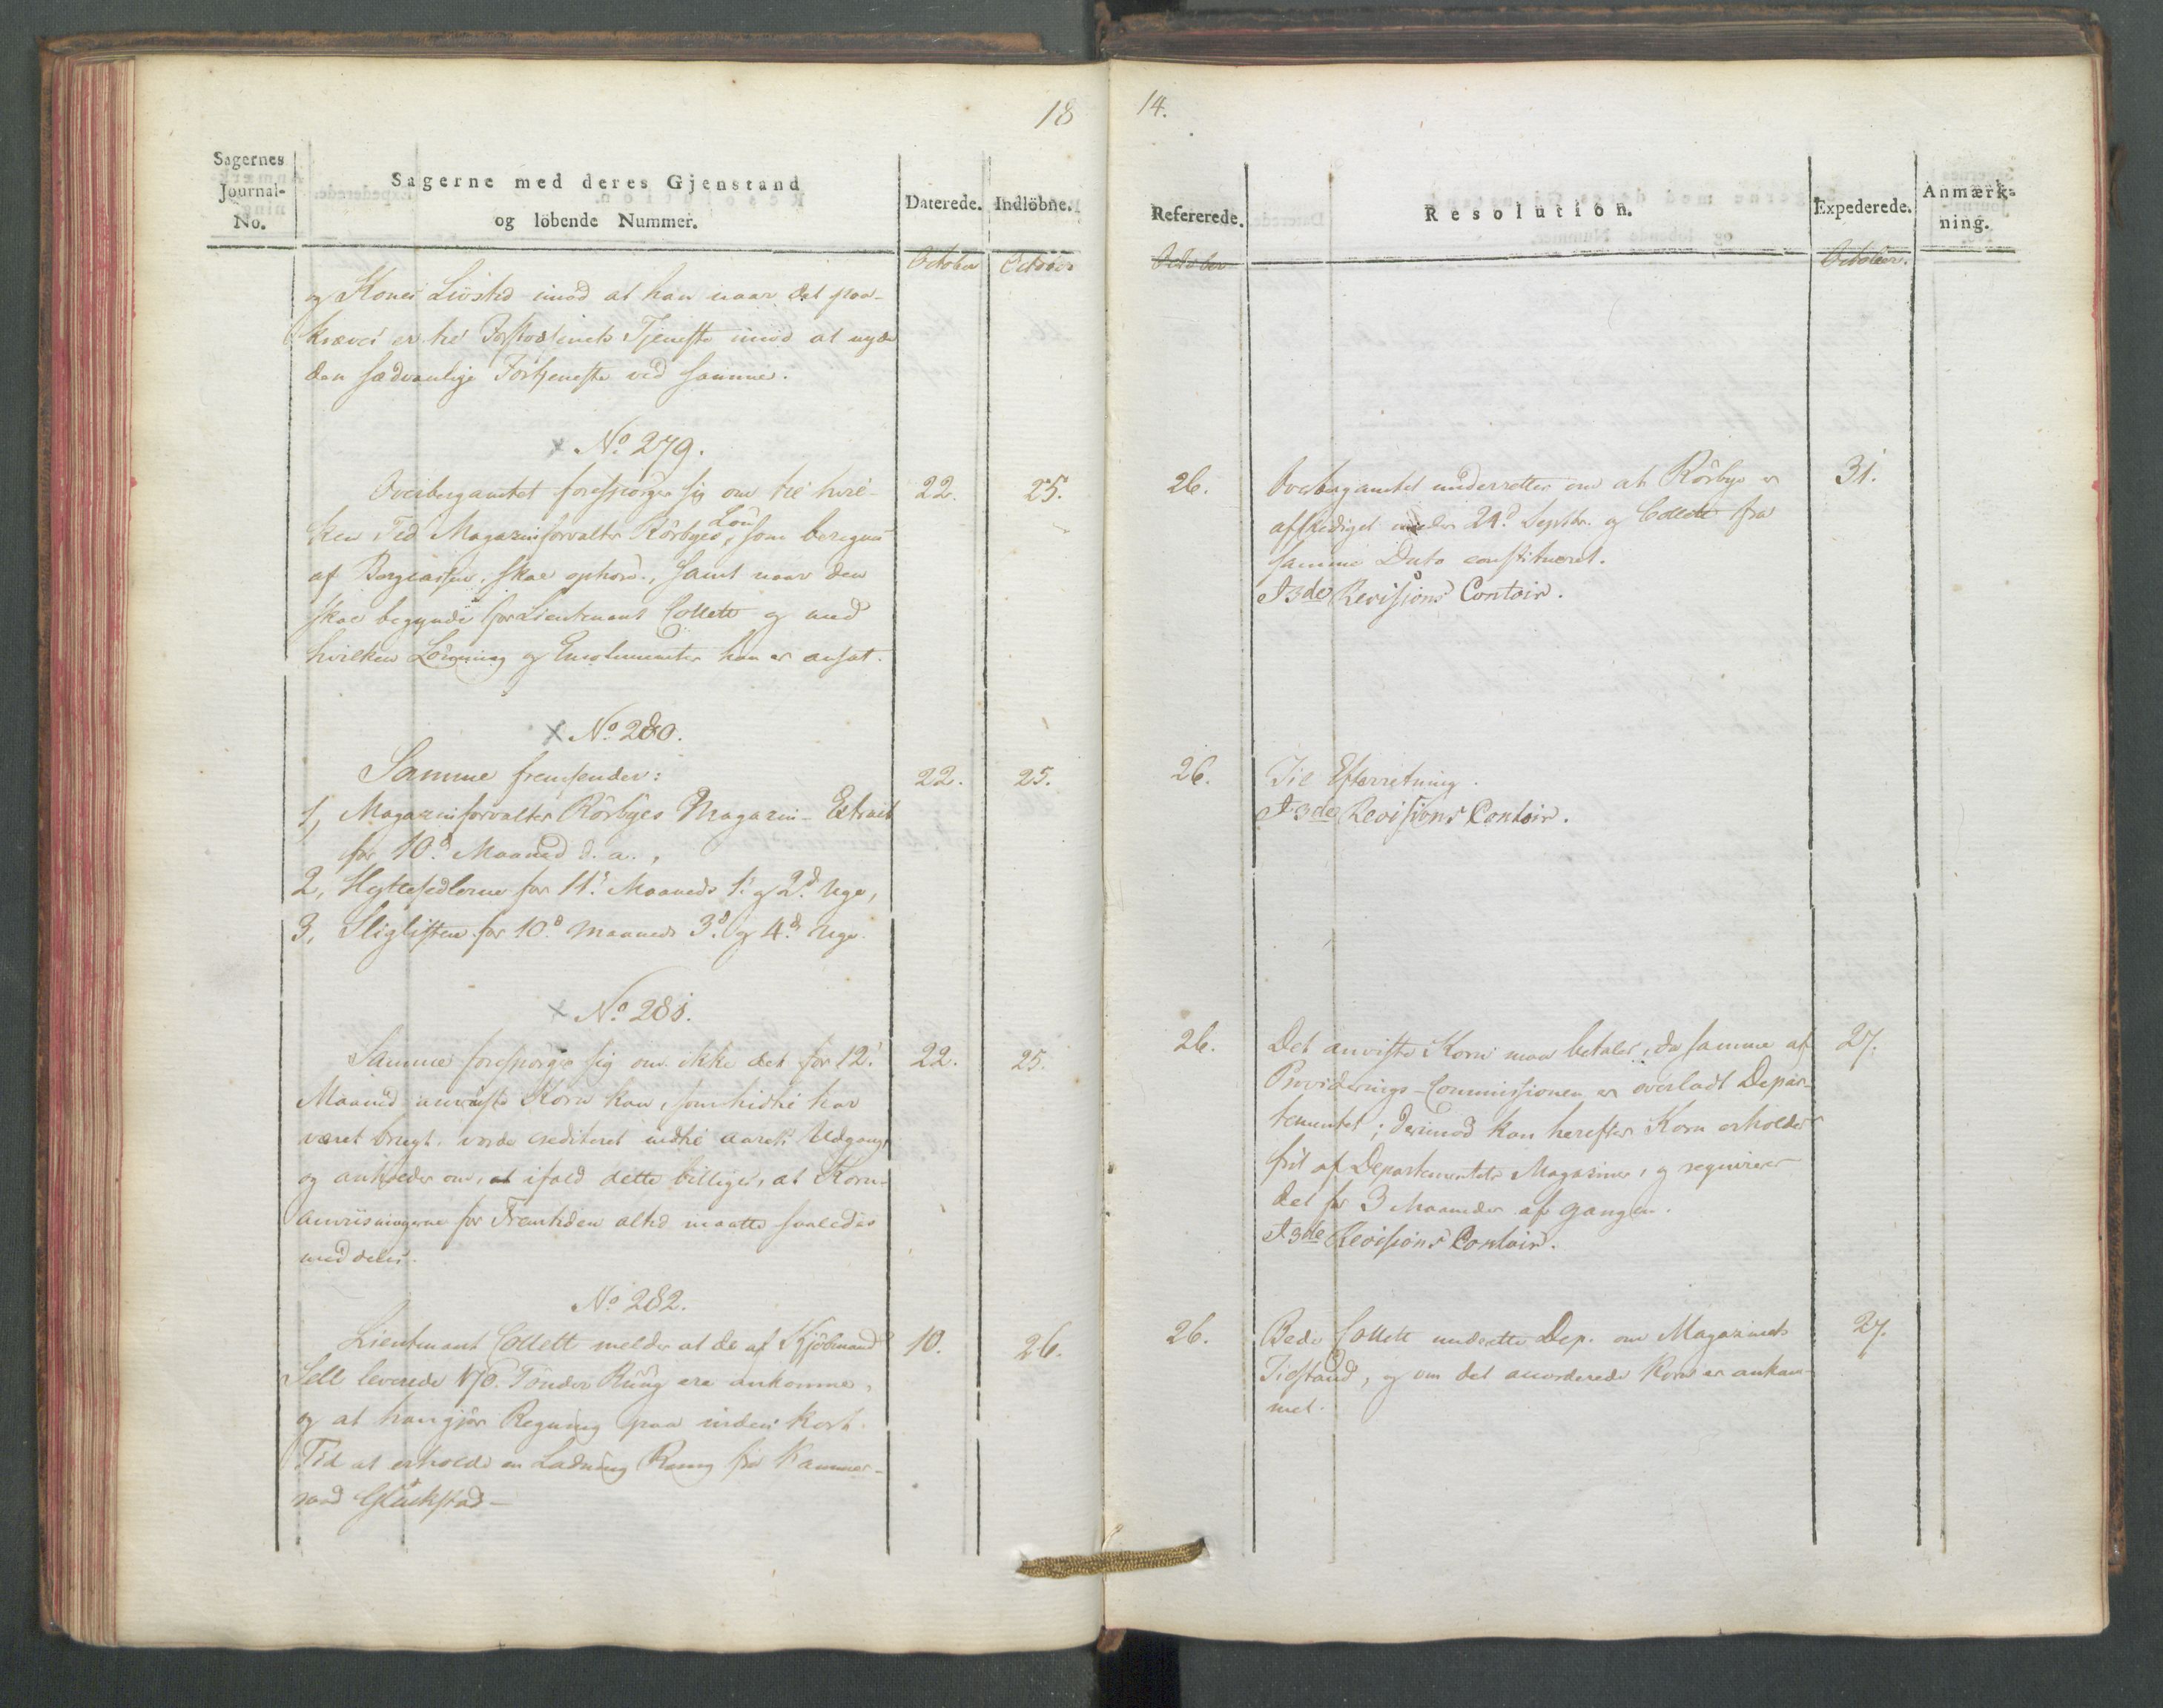 18
Sagernes
Journal-
No.
Sagerne med deres Gjenstand
og löbende Nummer.
Daterede.
Indlöbne.
October
October
og Kones Livstid imod at han naar det paa-
kræves er til Tjeneste imod at nyde
den sædvanlige Fortjeneste ved samme.
No. 279.
Overbergamtet forespörger sig om til hvil-
ken Tid Magazinforvalter Rörbyes Lön, som beregnes
af Bergcassen, skal ophöre, samt naar den
skal begynde for Lieutenant Collett og med
hvilken Lönning og Emolumenter han er ansat.
22.
25.
No. 280.
Samme fremsender:
1, Magazinforvalter Rörbyes Magazin-Extract
for 10d Maaned d. a.,
2, Hyttesedlerne for 11t Maaneds 1t og 2d Uge,
3, Sliglisten for 10d Maaneds 3d og 4d Uge.
22.
25.
No. 281.
Samme forespörger sig om ikke det for 12t
Maaned anviiste Korn kan, som hidtil har
været brugt, vorde crediteret indtil Aarets Udgang,
og anholder om, at ifald dette billiges, at Korn-
anviisningerne for Fremtiden altid maatte saaledes
meddeles.
22.
25.
No. 282.
Lieutenant Collett melder at de af Kjöbmand
Sell leverede 170. Tönder Rug ere ankomne,
og at han gjör Regning paa inden kort
Tid at erholde en Ladning Roug fra Kammer-
raad Glückstad—
10.
26.
14.
Refererede.
Resolution.
Expederede.
Anmærk-
ning.
October
October.
26.
Overbergamtet underrettes om at Rörbye er
afskediget under 24d Septbr. og Collett fra
samme Dato constitueret.
I 3de Revisions Contoir.
31.
26.
Til Efterretning.
I 3de Revisions Contoir.
26.
Det anviste Korn maa betales, da samme af
Provideerings-Commissionen er overladt Depar-
tementet; derimod kan herefter Korn erholdes
frit af Departementets Magasiner, og reqvirerer
det for 3 Maaneder af gangen.
I 3de Revisions Contoir.
27.
26.
Bede Collett underrette Dep. om Magazinets
Tilstand, og om det accorderede Korn er ankom-
met.
27.